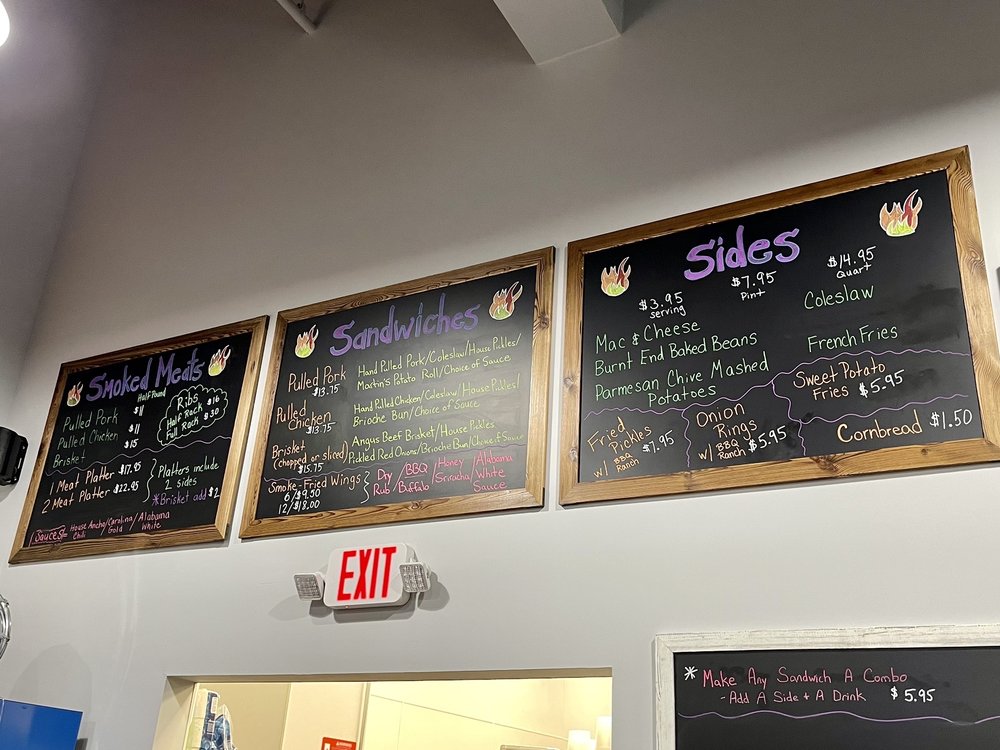 Smoked Meats
Half Pound
Pulled Pork $11
Pulled Chicken $11
Brisket $15
Ribs
Half Rack $16
Full Rack $30
1 Meat Platter $17.95
2 Meat Platter $22.95
Platters include
2 Sides
*Brisket add $2
Sauces = House Ancho Chili/Carolina Gold/Alabama White
Sandwiches
Pulled Pork
$13.75
Hand Pulled Pork/Coleslaw/House Pickles/
Martin's Potato Roll/Choice of Sauce
Pulled
Chicken
$13.75
Hand Pulled Chicken/Coleslaw/House Pickles/
Brioche Bun/Choice of Sauce
Brisket
(chopped or sliced)
$15.75
Angus Beef Brisket/House Pickles
Pickled Red Onions/Brioche Bun/Choice of Sauce
Smoke-Fried Wings
6/$9.50
12/$18.00
Dry Rub/BBQ Buffalo/Honey Sriracha/Alabama White Sauce
Sides
$3.95
Serving
$7.95
Pint
$14.95
Quart
Mac & Cheese
Burnt End Baked Beans
Parmesan Chive Mashed
Potatoes
Coleslaw
French Fries
Fried
Pickles
w/ BBQ Ranch $7.95
Onion
Rings
w/ BBQ Ranch $5.95
Sweet Potato
Fries $5.95
Cornbread $1.50
EXIT
* Make Any Sandwich A Combo
- Add A Side + A Drink $5.95